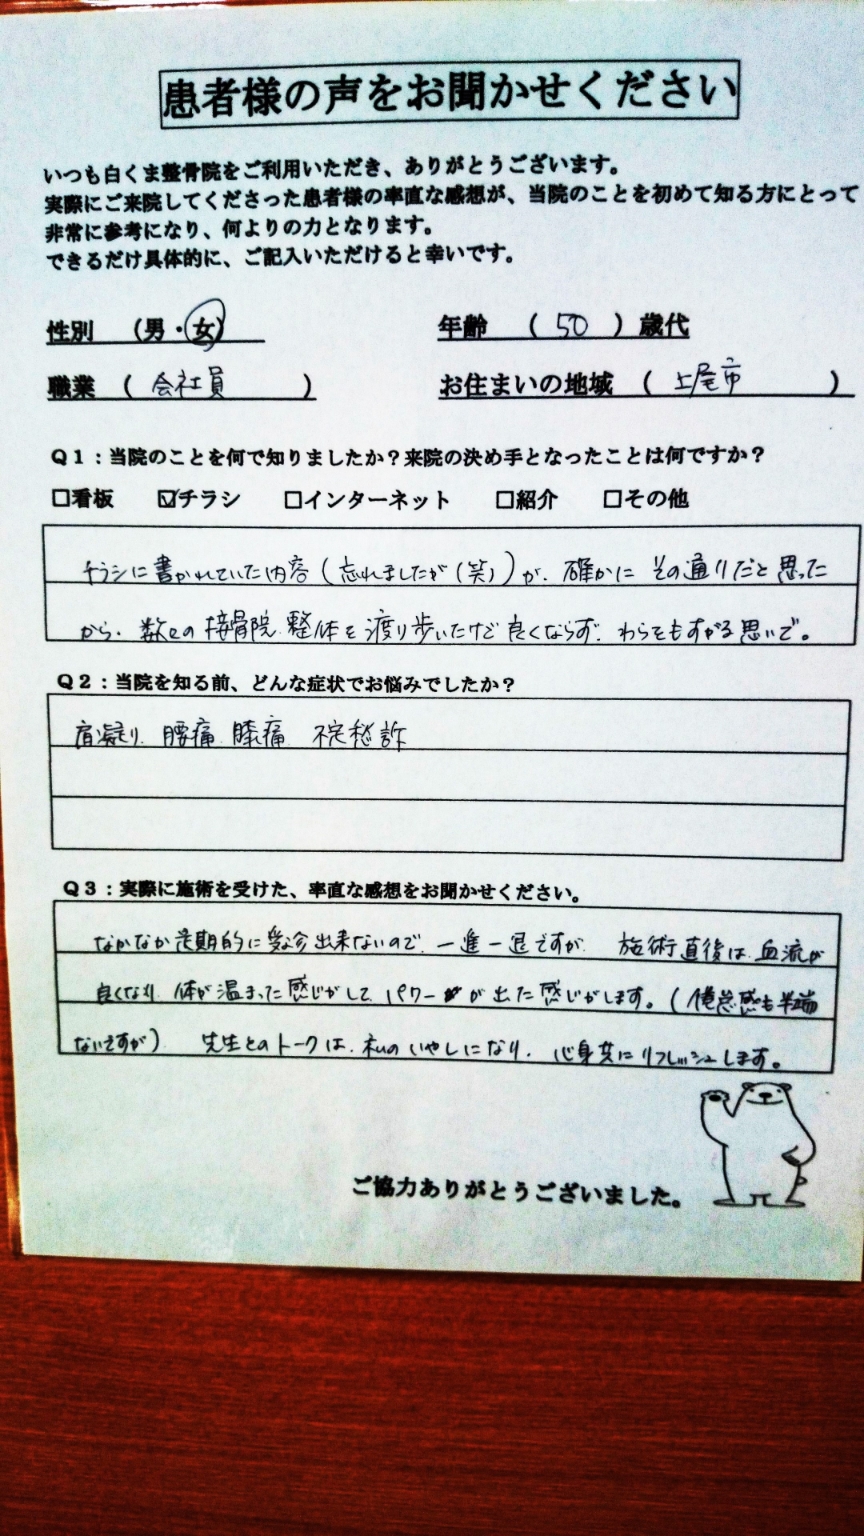 患者様の声をお聞かせください
いつも白くま整骨院をご利用いただき、ありがとうございます。
実際にご来院してくださった患者様の率直な感想が、当院のことを初めて知る方にとって
非常に参考になり、何よりの力となります。
できるだけ具体的に、ご記入いただけると幸いです。
性別 （男・女） 年齢 （ 50 ）歳代
職業 （ 会社員 ） お住まいの地域 （ 上尾市 ）
Q1：当院のことを何で知りましたか？来院の決め手となったことは何ですか？
□看板 ☑チラシ □インターネット □紹介 □その他
チラシに書かれていた内容(忘れましたが(笑))が、確かにその通りだと思った
から、数々の接骨院、整体を渡り歩いたけど良くならず、わらをもすがる思いで。
Q2：当院を知る前、どんな症状でお悩みでしたか？
肩凝り、腰痛、膝痛、不定愁訴
Q3：実際に施術を受けた、率直な感想をお聞かせください。
なかなか定期的に受診出来ないので、一進一退ですが、施術直後は、血流が
良くなり、体が温まった感じがして、パワーが出た感じがします。(倦怠感も半端
ないですが)、先生とのトークは、私のいやしになり、心身共にリフレッシュします。
ご協力ありがとうございました。